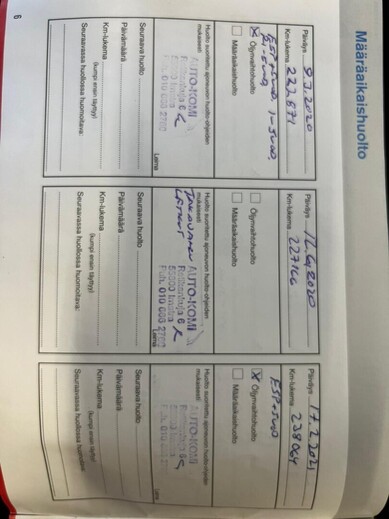 Määräaikaishuolto
Päiväys 9.3.2020
Km-lukema 222.871
Öljynvaihtohuolto
Määräaikaishuolto
Huolto suoritettu ajoneuvon huolto-ohjeiden
mukaisesti
AUTO-KOMI
Leima
Seuraava huolto
Päivämäärä
Km-lukema
(kumpi ensin täyttyy)
Seuraavassa huollossa huomioitava:
Päiväys 16.6.2020
Km-lukema 227166
Öljynvaihtohuolto
Määräaikaishuolto
Huolto suoritettu ajoneuvon huolto-ohjeiden
mukaisesti
AUTO-KOMI
Leima
Seuraava huolto
Päivämäärä
Km-lukema
(kumpi ensin täyttyy)
Seuraavassa huollossa huomioitava:
Päiväys 17.2.2021
Km-lukema 238064
Öljynvaihtohuolto
Määräaikaishuolto
Huolto suoritettu ajoneuvon huolto-ohjeiden
mukaisesti
AUTO-KOMI
Leima
Seuraava huolto
Päivämäärä
Km-lukema
(kumpi ensin täyttyy)
Seuraavassa huollossa huomioitava:
6